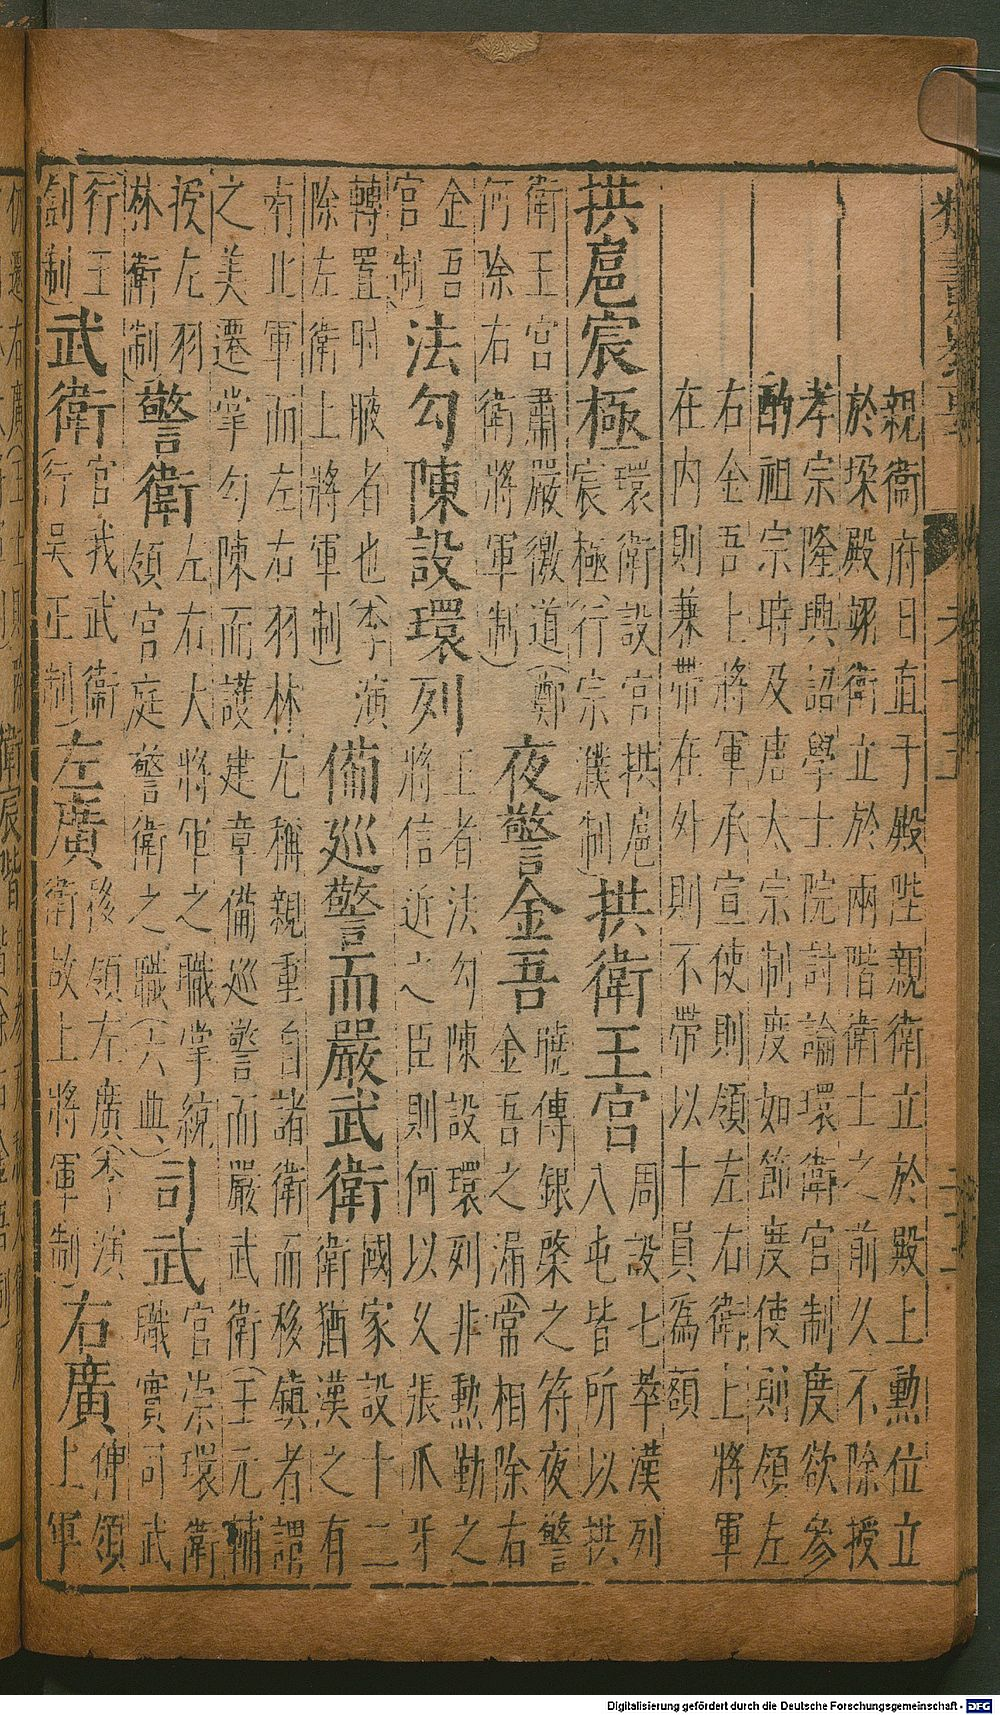 親衛府日直于殿陛親衛立於殿上勳位立
於垜殿翊衛立於兩階衛士之前久不除授
孝宗隆興詔學士院討論環衛官制度欲參
酌祖宗時及唐太宗制度如節度使則領左
右金吾上將軍承宣使則領左右衛上將軍
在內則兼帶在外則不帶以十員為額
拱扈宸極
環衛設官拱扈
宸極(行宗濮制)
拱衛王宮
周設七萃漢列
八屯皆所以拱
衛王宮肅嚴徼道(鄭
何除右衛將軍制)
夜警金吾
曉傳銀棨之符夜警
金吾之漏(常相除右
金吾
宮制)
法勾陳設環列
王者法勾陳設環列非勲勤之
將信近之臣則何以久張爪牙
轉置肘腋者也(李演
除左衛上將軍制)
備巡警而嚴武衛
國家設十二
衛猶漢之有
南北軍而左右羽林尤稱親重自諸衛而移鎮者謂
之美遷掌勾陳而護建章備巡警而嚴武衛(王元輔
授左羽
林衛制)
警衛
左右大將軍之職掌統
領宮庭警衛之職(六典)
司武
官崇環衛
職實司武
行王
制制)
武衛
官我武衛
(行吳正制)
左廣
後領左廣(李演
衛故上將軍制)
右廣
俾領
上軍
Digitalisierung gefördert durch die Deutsche Forschungsgemeinschaft - DFG